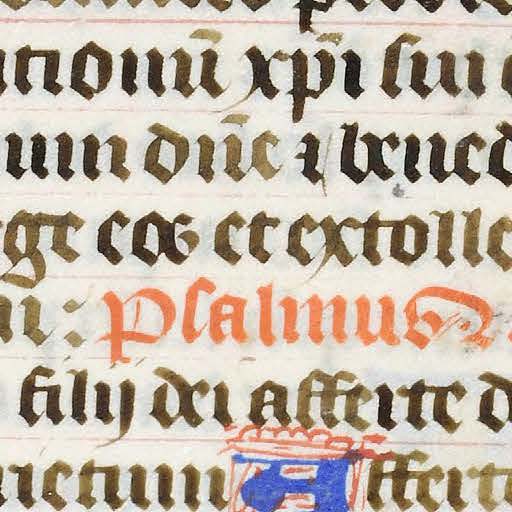 tionū xp̄i sui
um dn̄e ⁊ bened
ge eos et extolle
Psalmus
filij dei afferte d
ictum Afferte